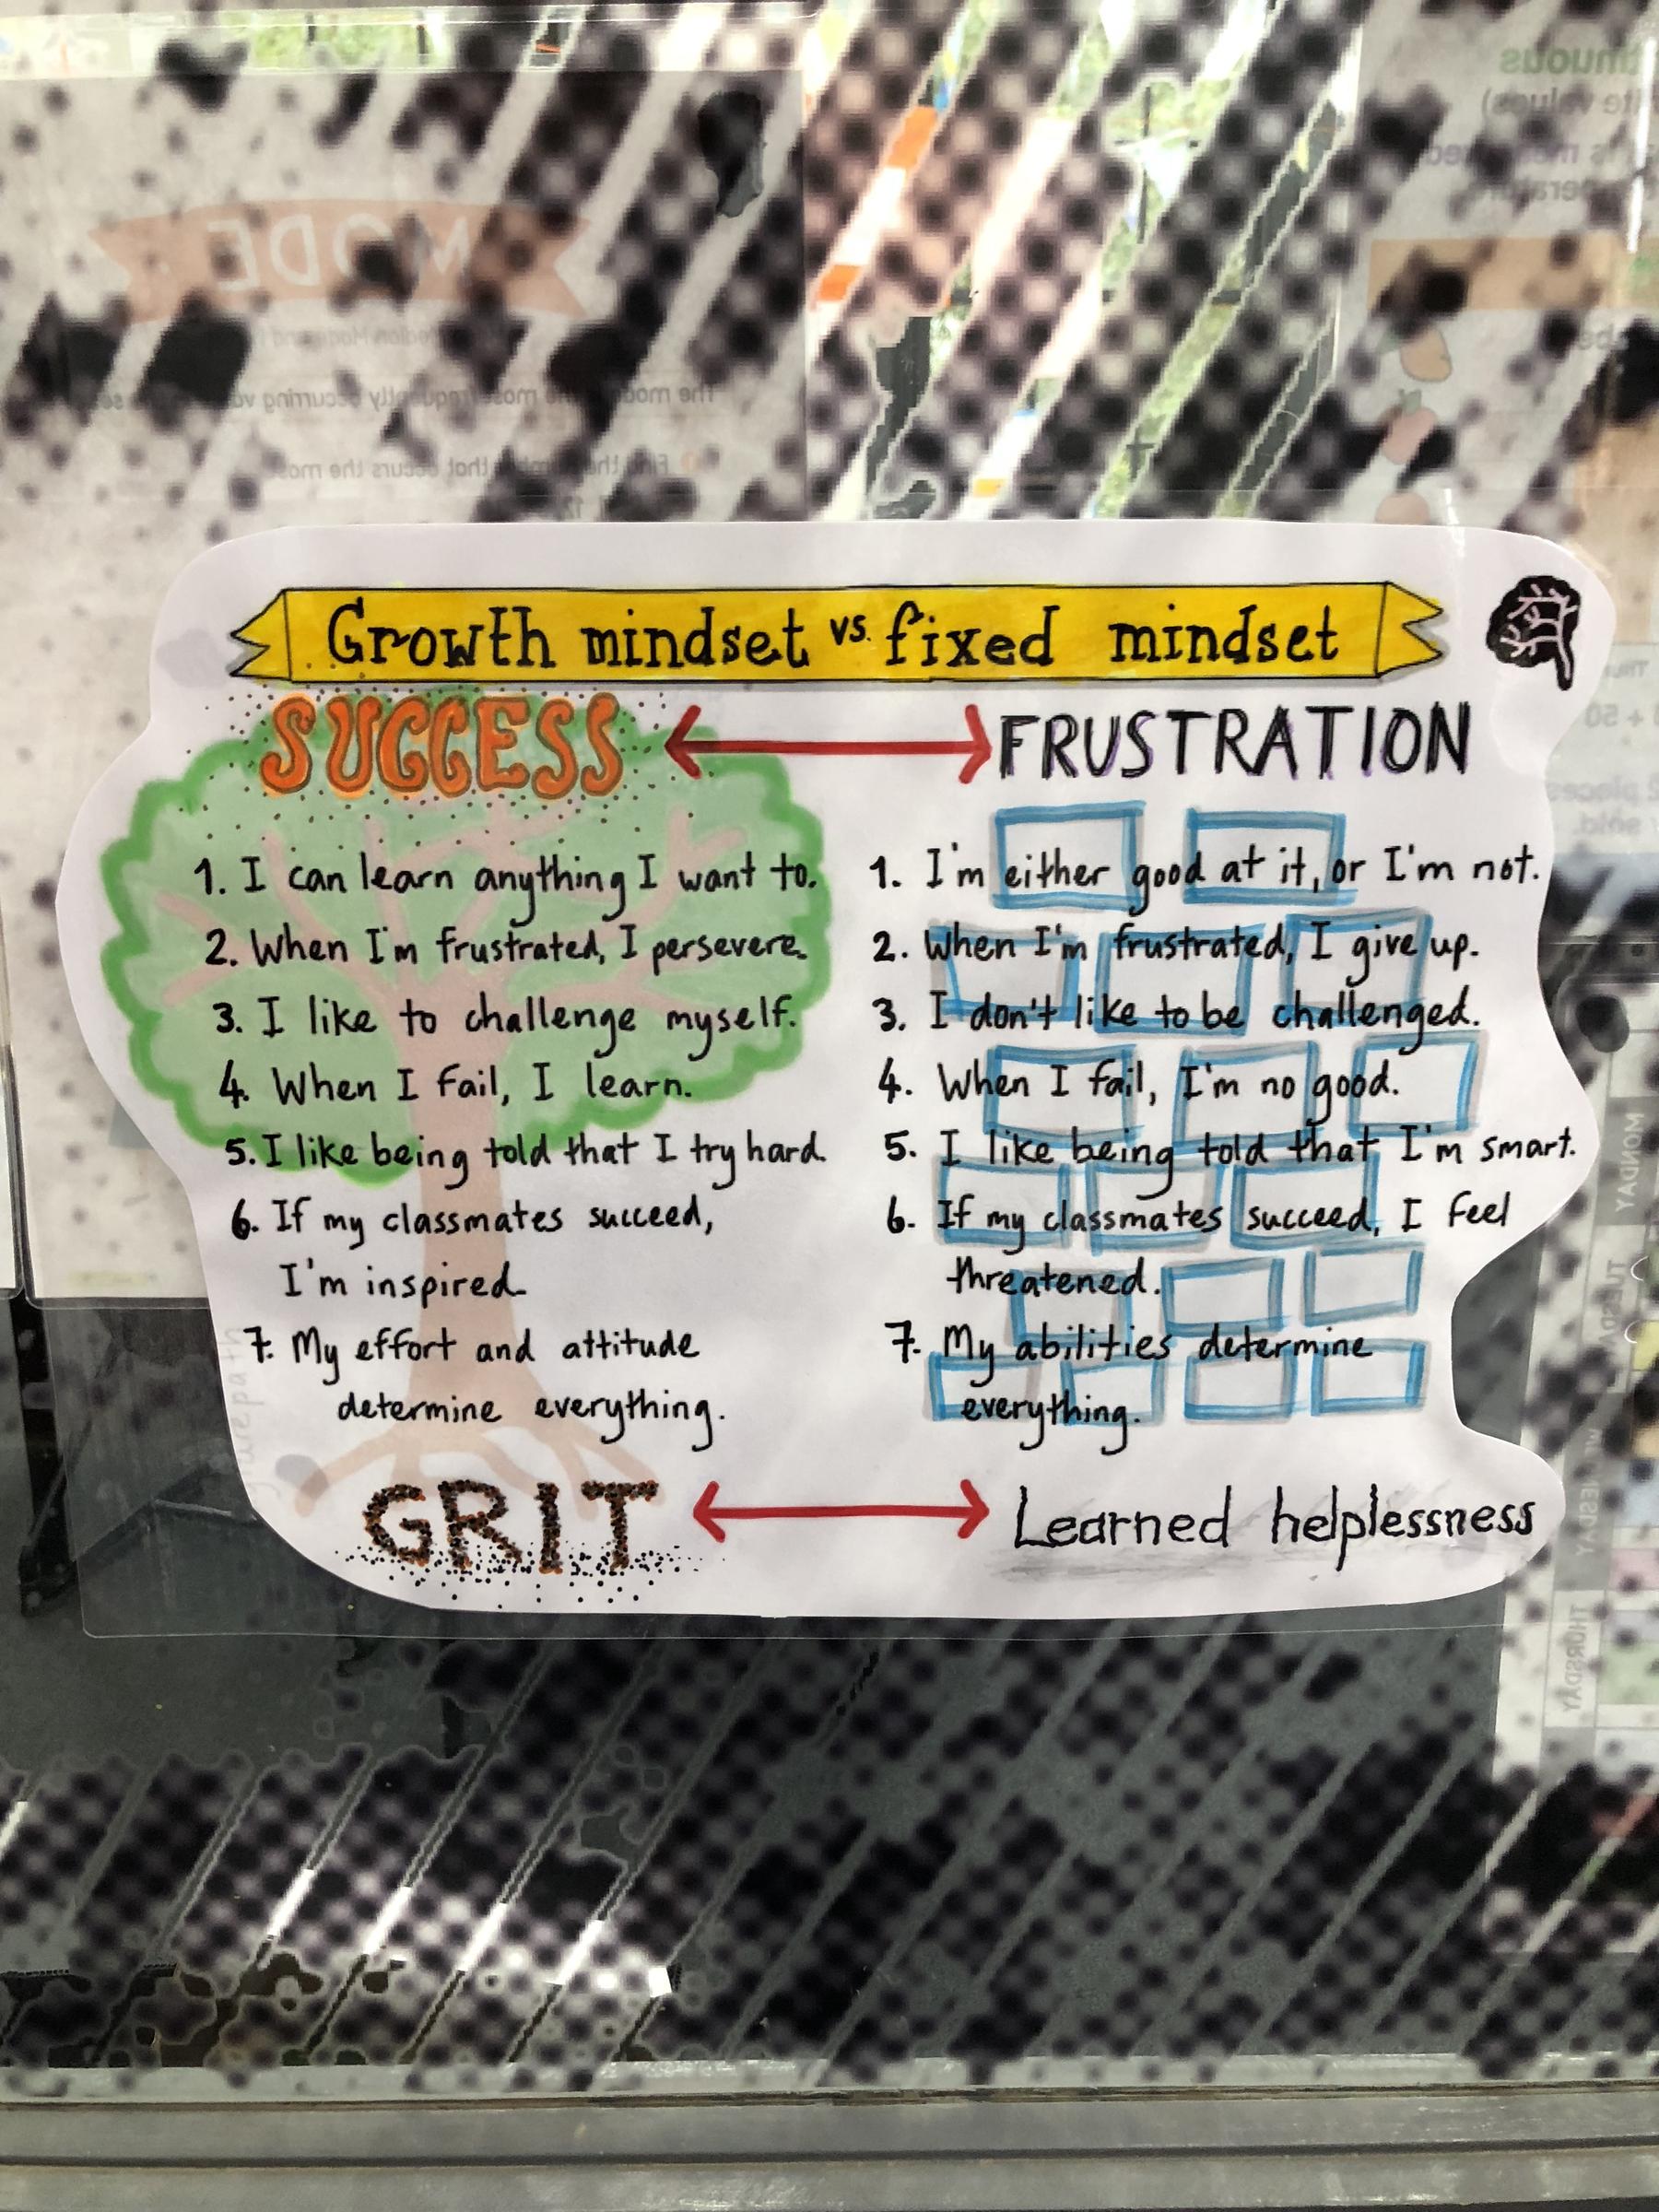 MODE
Growth mindset vs. fixed mindset
SUCCESS
FRUSTRATION
1. I can learn anything I want to.
2. When I'm frustrated, I persevere.
3. I like to challenge myself.
4. When I fail, I learn.
5. I like being told that I try hard.
6. If my classmates succeed,
I'm inspired.
7. My effort and attitude
determine everything.
1. I'm either good at it, or I'm not.
2. When I'm frustrated, I give up.
3. I don't like to be challenged.
4. When I fail, I'm no good.
5. I like being told that I'm smart.
6. If my classmates succeed, I feel
threatened.
7. My abilities determine
everything.
GRIT
Learned helplessness
MONDAY
THURSDAY